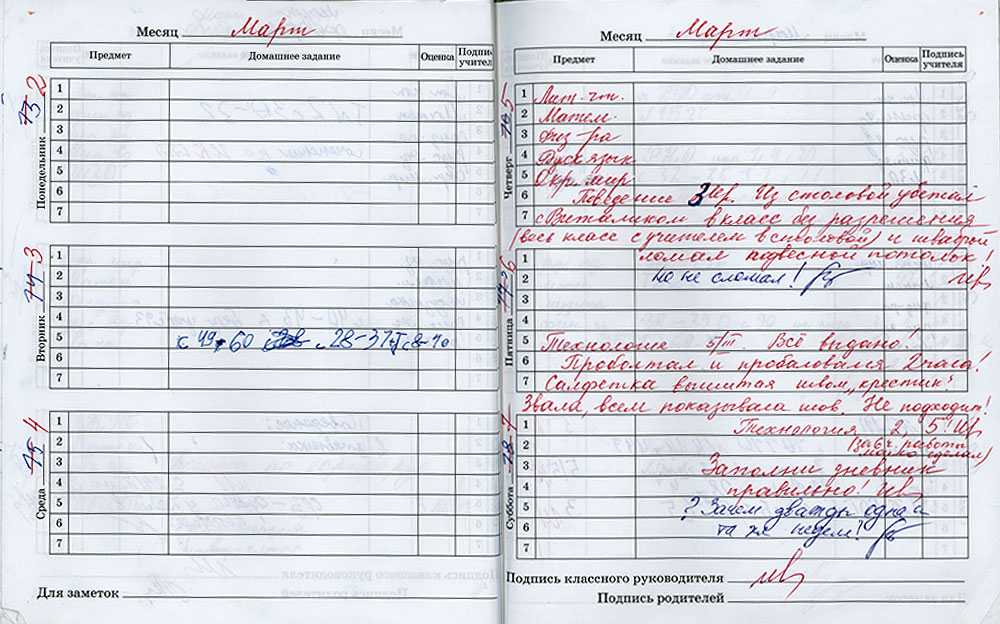 Месяц Март
Предмет Домашнее задание Оценка Подпись учителя
Понедельник 2
1
2
3
4
5
6
7
Вторник 3
1
2
3
4
5 с 49, 60 с. 28-37
6
7
Среда 4
1
2
3
4
5
6
7
Для заметок
Месяц Март
Предмет Домашнее задание Оценка Подпись учителя
Четверг 5
1 Лит. чт.
2 Матем.
3 Физ-ра
4 Русск язык
5 Окр. мир.
6 Поведение 3 Из столовой убежал
7 с Виталиком в класс без разрешения
(весь класс с учителем в столовой) и шваброй
1 ломал подвесной потолок!
Пятница 6
2 но не сломал!
3
4
5 Технология 5/III. Всё выдано!
6 Проболтал и пробаловался 2 часа!
7 Салфетка вышитая швом „крестик".
Звала, всем показывала шов. Не подходит!
Суббота 7
1 Технология 2, 5!
2 (за 6ч. работы мало сделал)
3 Заполни дневник
4 правильно!
5 ? Зачем дважды одна и
6 та же неделя?
7
Подпись классного руководителя
Подпись родителей